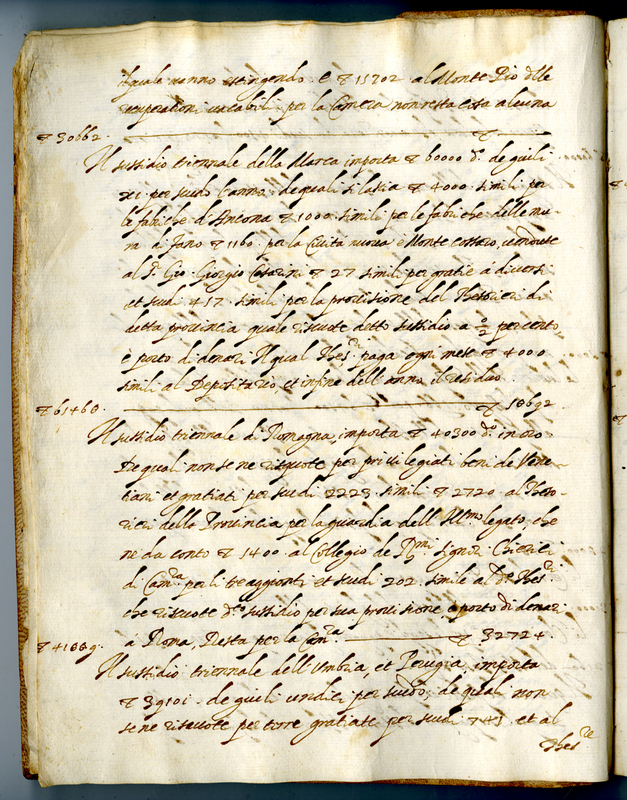 quali vanno estingendo. E ∇ 15702 al Monte Pio delle
recuperationi vacabili per la Camera non resta cosa alcuna
∇ 30662.
Il sussidio triennale della Marca importa ∇ 60000 di. de giuli
xi. per scudo l'anno, de quali si lassa ∇ 4000 simili per
le fabriche d'Ancona ∇ 1000 simili per le fabriche delle mu-
ra a fano ∇ 1160. per la Civita nuova e Monte Cossaro, vendute
al S.r Gio: Giorgio Cesarini ∇ 27 simili per gratie à diversi
et scudi 417. simili per la provisione del Thesorieri di
detta provincia quale riscuote detto sussidio a 2 per cento,
e porto di denari Il qual Thes.ri paga ogni mese ∇ 4000
simili al Depositario, et infine dell'anno il residuo
∇ 61460. ∇ 18692
Il sussidio triennale di Romagna, importa ∇ 40300 d.i in oro
De quali non se ne riscuote per privilegiati beni de Vene-
tiani et gratiati per scudi 2223 simili ∇ 2720. al Theso-
rieri della Provincia per la guardia dell'Ill.mo legato, che
ne da conto ∇ 1400. al Collegio de R.mi Signori Chierici
di Cam.ra per li tre aggionti et scudi 202. simile al d.o Thes.ri
che riscuote d.o sussidio per sua provisione e porto di denari
a Roma, Resta per la Cam.ra ∇ 32724.
∇ 41889.
Il sussidio triennale dell'Umbria, et Perugia, importa
∇ 39101. de giuli undici per scudo, de quali non
se ne riscuote per terre gratiate per scudi 745. et al
Thes.re